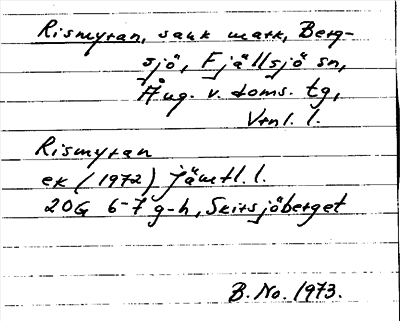 Rismyran, sank mark, Berg-
sjö, Fjällsjö sn,
Ång. v. doms. tg,
Vtnl. l.
Rismyran
ek (1972) Jämtl. l.
20G 6-7 g-h, Skirsjöberget
B. No. 1973.